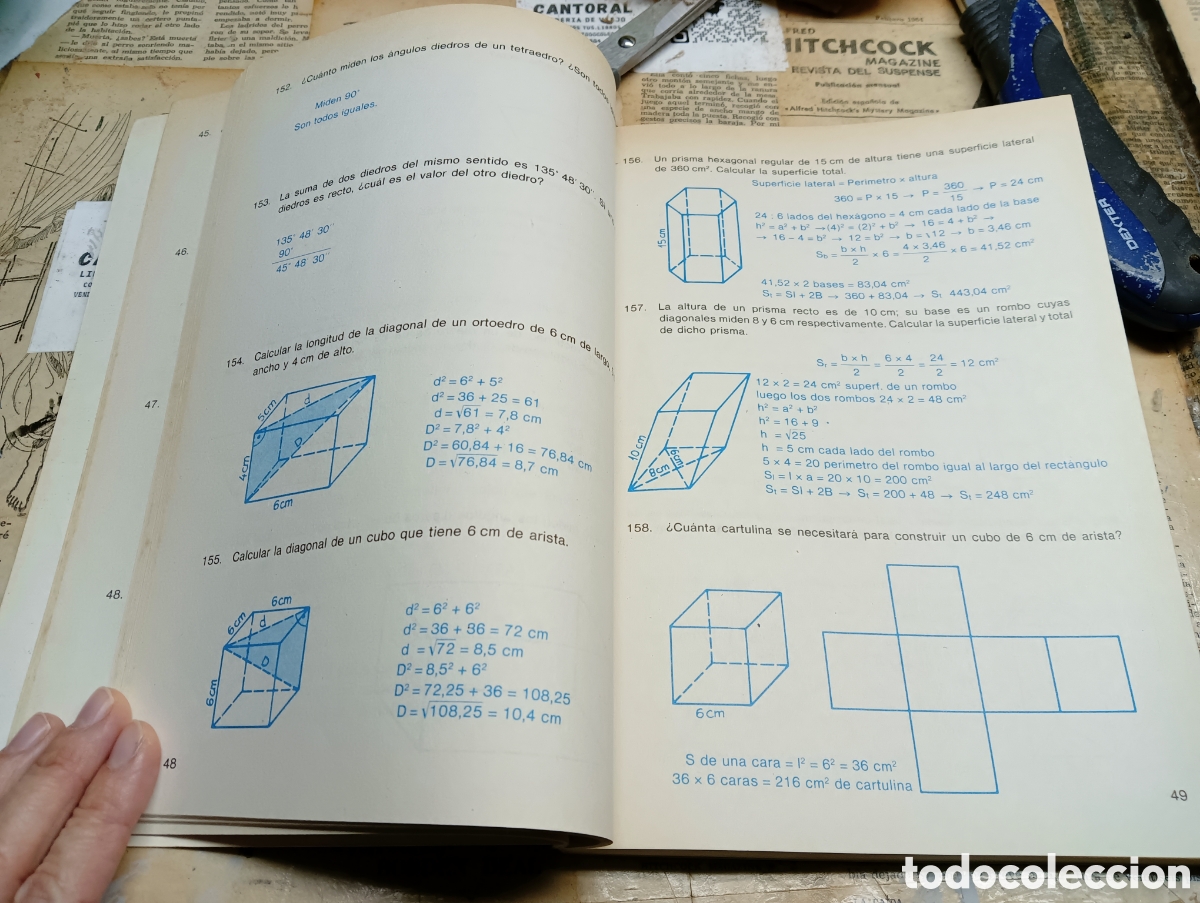 CANTORAL
FRED
HITCHCOCK
MAGAZINE
REVISTA DEL SUSPENSE
Edición española de
«Alfred Hitchcock's Mystery Magazine»
DEXTER
45.
46.
47.
48.
152. ¿Cuánto miden los ángulos diedros de un tetraedro? ¿Son todos
Miden 90°
Son todos iguales.
153. La suma de dos diedros del mismo sentido es 135° 48' 30''. Si
diedros es recto, ¿cuál es el valor del otro diedro?
135° 48' 30''
90°
45° 48' 30''
154. Calcular la longitud de la diagonal de un ortoedro de 6 cm de largo,
ancho y 4 cm de alto.
5cm
d
D
4cm
6cm
d² = 6² + 5²
d² = 36 + 25 = 61
d = √61 = 7,8 cm
D² = 7,8² + 4²
D² = 60,84 + 16 = 76,84 cm
D = √76,84 = 8,7 cm
155. Calcular la diagonal de un cubo que tiene 6 cm de arista.
6cm
6cm
d
D
6cm
d² = 6² + 6²
d² = 36 + 36 = 72 cm
d = √72 = 8,5 cm
D² = 8,5² + 6²
D² = 72,25 + 36 = 108,25
D = √108,25 = 10,4 cm
48
156. Un prisma hexagonal regular de 15 cm de altura tiene una superficie lateral
de 360 cm². Calcular la superficie total.
15cm
Superficie lateral = Perimetro × altura
360 = P × 15 → P = 360/15 → P = 24 cm
24 : 6 lados del hexágono = 4 cm cada lado de la base
h² = a² + b² → (4)² = (2)² + b² → 16 = 4 + b² →
→ 16 – 4 = b² → 12 = b² → b = √12 → b = 3,46 cm
S_b = b × h/2 × 6 = 4 × 3,46/2 × 6 = 41,52 cm²
41,52 × 2 bases = 83,04 cm²
S_t = Sl + 2B → 360 + 83,04 → S_t 443,04 cm²
157. La altura de un prisma recto es de 10 cm; su base es un rombo cuyas
diagonales miden 8 y 6 cm respectivamente. Calcular la superficie lateral y total
de dicho prisma.
10cm
8cm
6cm
S_t = b × h/2 = 6 × 4/2 = 24/2 = 12 cm²
12 × 2 = 24 cm² superf. de un rombo
luego los dos rombos 24 × 2 = 48 cm²
h² = a² + b²
h² = 16 + 9
h = √25
h = 5 cm cada lado del rombo
5 × 4 = 20 perimetro del rombo igual al largo del rectángulo
S_l = l × a = 20 × 10 = 200 cm²
S_t = Sl + 2B → S_t = 200 + 48 → S_t = 248 cm²
158. ¿Cuánta cartulina se necesitará para construir un cubo de 6 cm de arista?
6cm
S de una cara = l² = 6² = 36 cm²
36 × 6 caras = 216 cm² de cartulina
49
todocoleccion